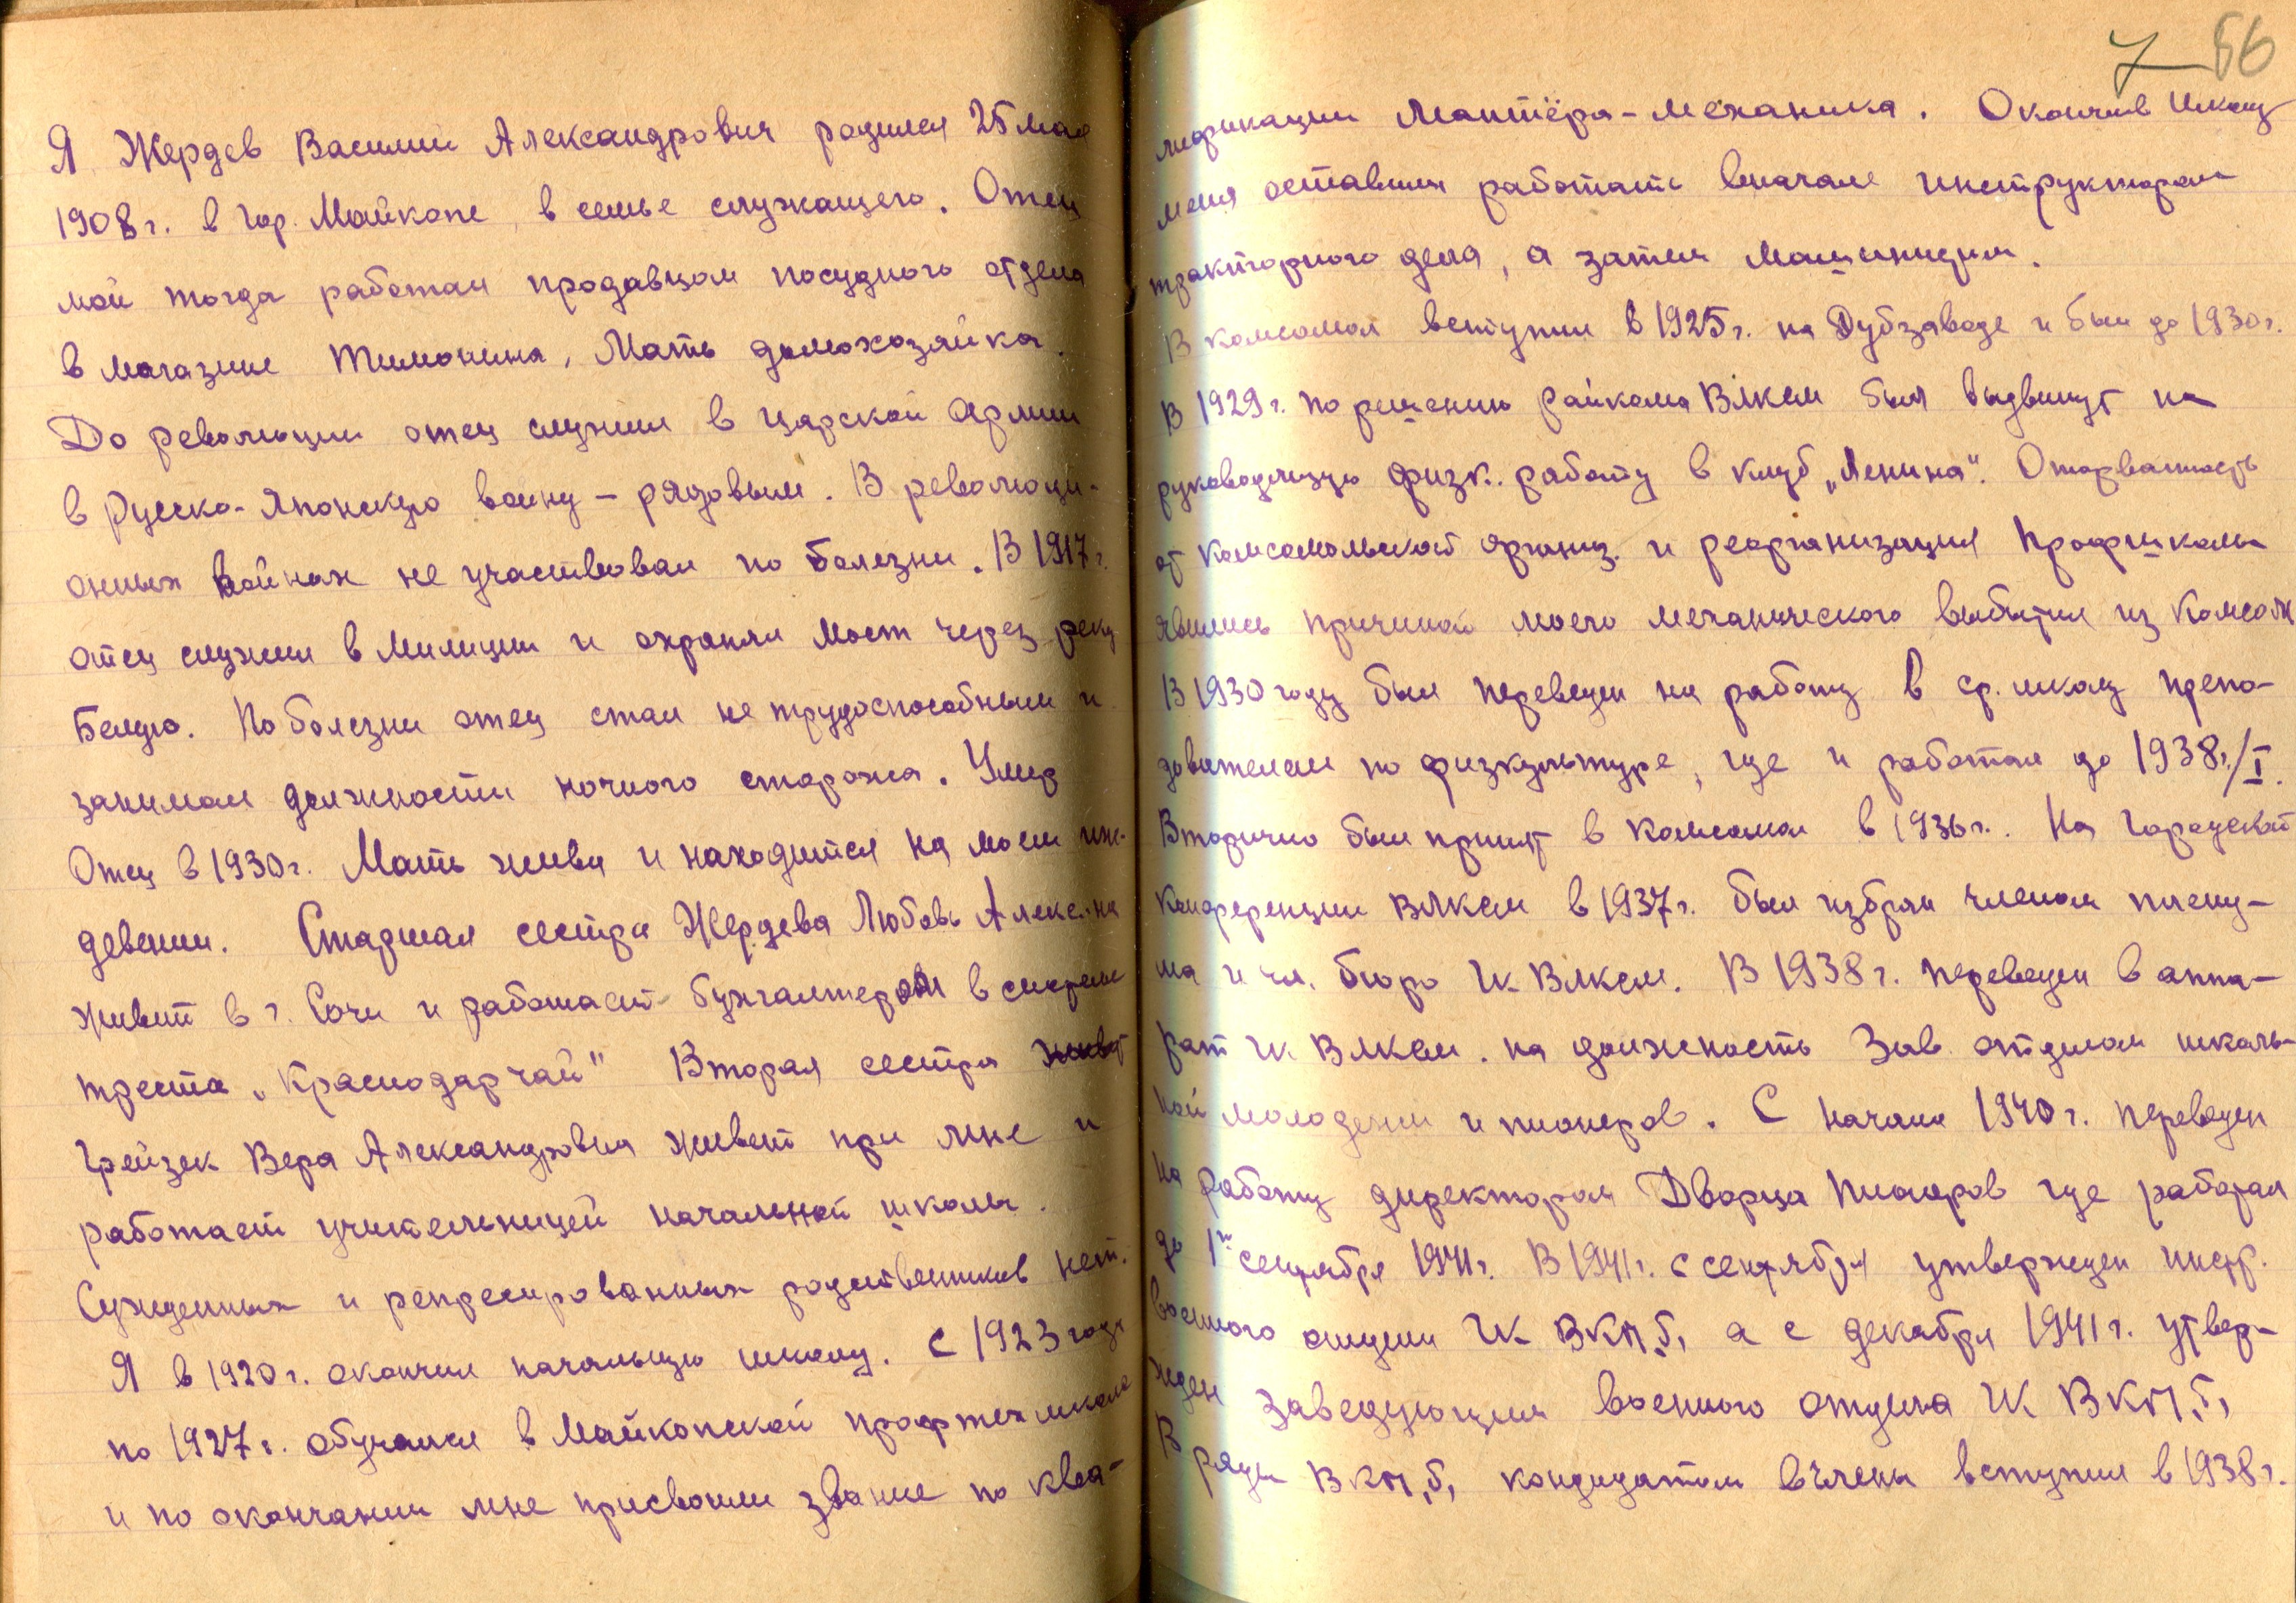 Я Жердев Василий Александрович родился 25 мая
1908 г. в гор. Майкопе, в семье служащего. Отец
мой тогда работал продавцом посудного отдела
в магазине Тимонина, Мать домохозяйка.
До революции отец служил в царской армии
в Русско-Японскую войну – рядовым. В революци-
онных войнах не участвовал по болезни. В 1917 г.
отец служил в милиции и охранял мост через реку
Белую. По болезни отец стал не трудоспособным и
занимал должности ночного сторожа. Умер
Отец в 1930 г. Мать жива и находится на моем иж-
девении. Старшая сестра Жердева Любовь
живет в г. Сочи и работает бухгалтером в
треста „Краснодарчай" Вторая сестра живет
Грейзек Вера Александровна живет при мне и
работает учительницей начальной школы.
Сужденных и репресированных родственников нет.
Я в 1920 г. окончил начальную школу. С 1923 года
по 1927 г. обучался в Майкопской профтехшколе
и по окончании мне присвоили звание по ква-
7 66
лификации Монтёра-механика. Окончив школу
меня оставили работать вначале инструктором
тракторного дела, а затем
В комсомол вступил в 1925 г. на Дубзаводе и был до 1930 г.
В 1929 г. по решению райкома ВЛКСМ был выдвинут на
руководящую физк. работу в клуб „Ленина". Оторванность
от комсомольской организ. и реорганизация Профшколы
явились причиной моего механического выбытия из Комсом
В 1930 году был переведен на работу в ср. школу препо-
давателем по физкультуре, где и работал до 1938 г./I.
Вторично был принят в комсомол в 1936 г. На городской
конференции ВЛКСМ в 1937 г. был избран членом плену-
ма и чл. бюро ГК ВЛКСМ. В 1938 г. переведен в аппа-
рат ГК ВЛКСМ. на должность Зав. отделом школь-
ной молодежи и пионеров. С начала 1940 г. переведен
на работу директором Дворца пионеров где работал
до 1го сентября 1941 г. В 1941 г. с сентября утвержден инстр.
военного отдела ГК ВКП,б, а с декабря 1941 г. утвер-
жден заведующим военного отдела ГК ВКП,б,
В ряды ВКП,б, кандидатом в члены вступил в 1938 г.